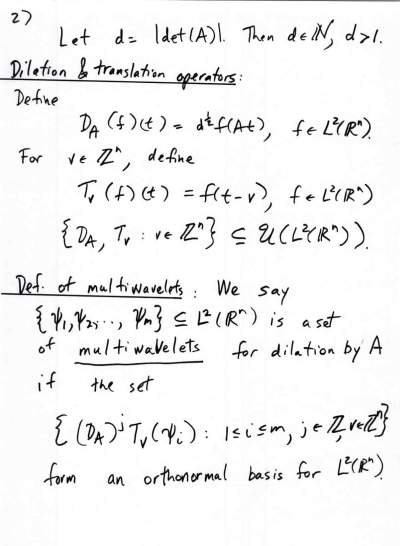 2)
Let d = |det(A)|. Then d ∈ ℕ, d > 1.
Dilation & translation operators:
Define
D_A (f)(t) = d^{1/2} f(At), f ∈ L²(ℝⁿ).
For v ∈ ℤⁿ, define
T_v (f)(t) = f(t-v), f ∈ L²(ℝⁿ)
{D_A, T_v : v ∈ ℤⁿ} ⊆ 𝒰(L²(ℝⁿ)).
Def. of multiwavelets: We say
{ψ₁, ψ₂, ..., ψ_m} ⊆ L²(ℝⁿ) is a set
of multiwavelets for dilation by A
if the set
{(D_A)^j T_v (ψ_i) : 1 ≤ i ≤ m, j ∈ ℤ, v ∈ ℤⁿ}
form an orthonormal basis for L²(ℝⁿ).